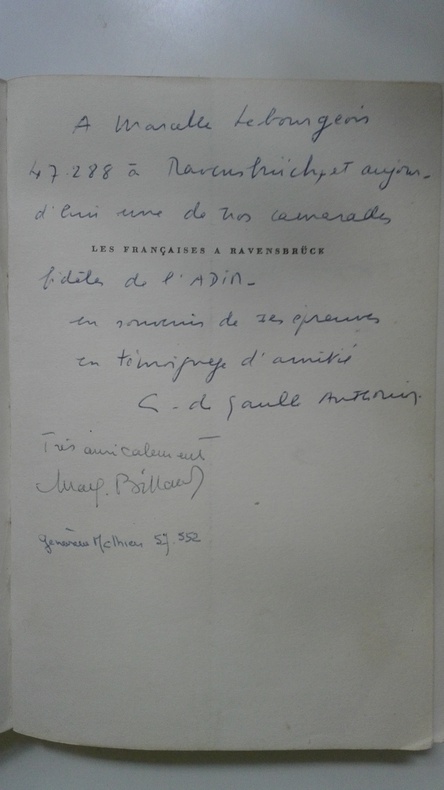 A Marcelle Lebourgeois
47.288 à Ravensbrück, et aujour-
d'hui une de nos camarades
LES FRANÇAISES A RAVENSBRÜCK
fidèles de l'ADIR -
en souvenir de ses épreuves
en témoignage d'amitié
G. de Gaulle Anthonioz
Très amicalement
Marg. Billard
Geneviève Mathieu 57.552